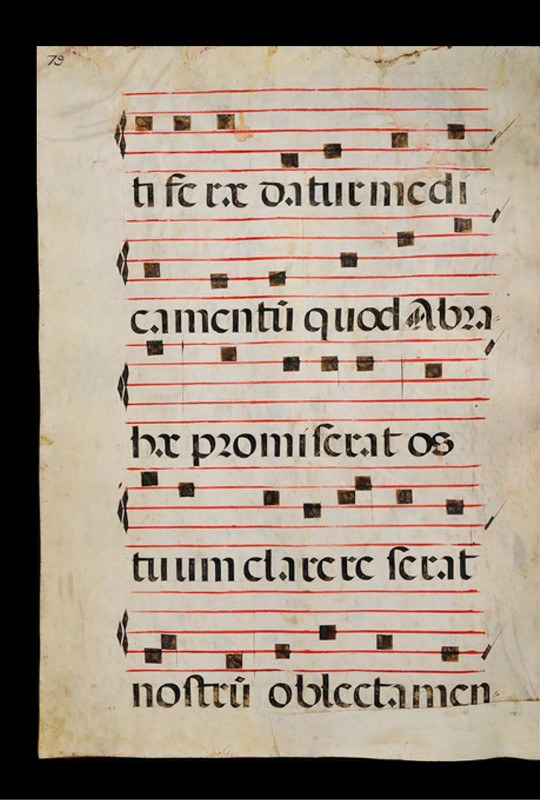 79
ti fe ræ datur medi
camentū quod Abra
hæ promiserat os
tuum clarere serat
nostrū oblectamen